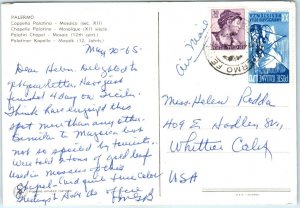 PALERMO
Cappella Palatina - Mosaico (sec. XII)
Chapelle Palatine - Mosaïque (XII siècle)
Palatine Chapel - Mosaic (12th cent.)
Palatiner Kapelle - Mosaik (12. Jahrh.)
May 20-'65
Dear Helen. Delighted to
Just
finished 4 days in Sicily.
Think have enjoyed this
spot more than any other.
Similar to Mexico but
not so spoiled by tourists.
tons of gold leaf
used in mosaics of this
Chapel - Card
the office
Air Mail
Miss. Helen Redda
409 E. Hadley St.,
Whittier Calif
USA